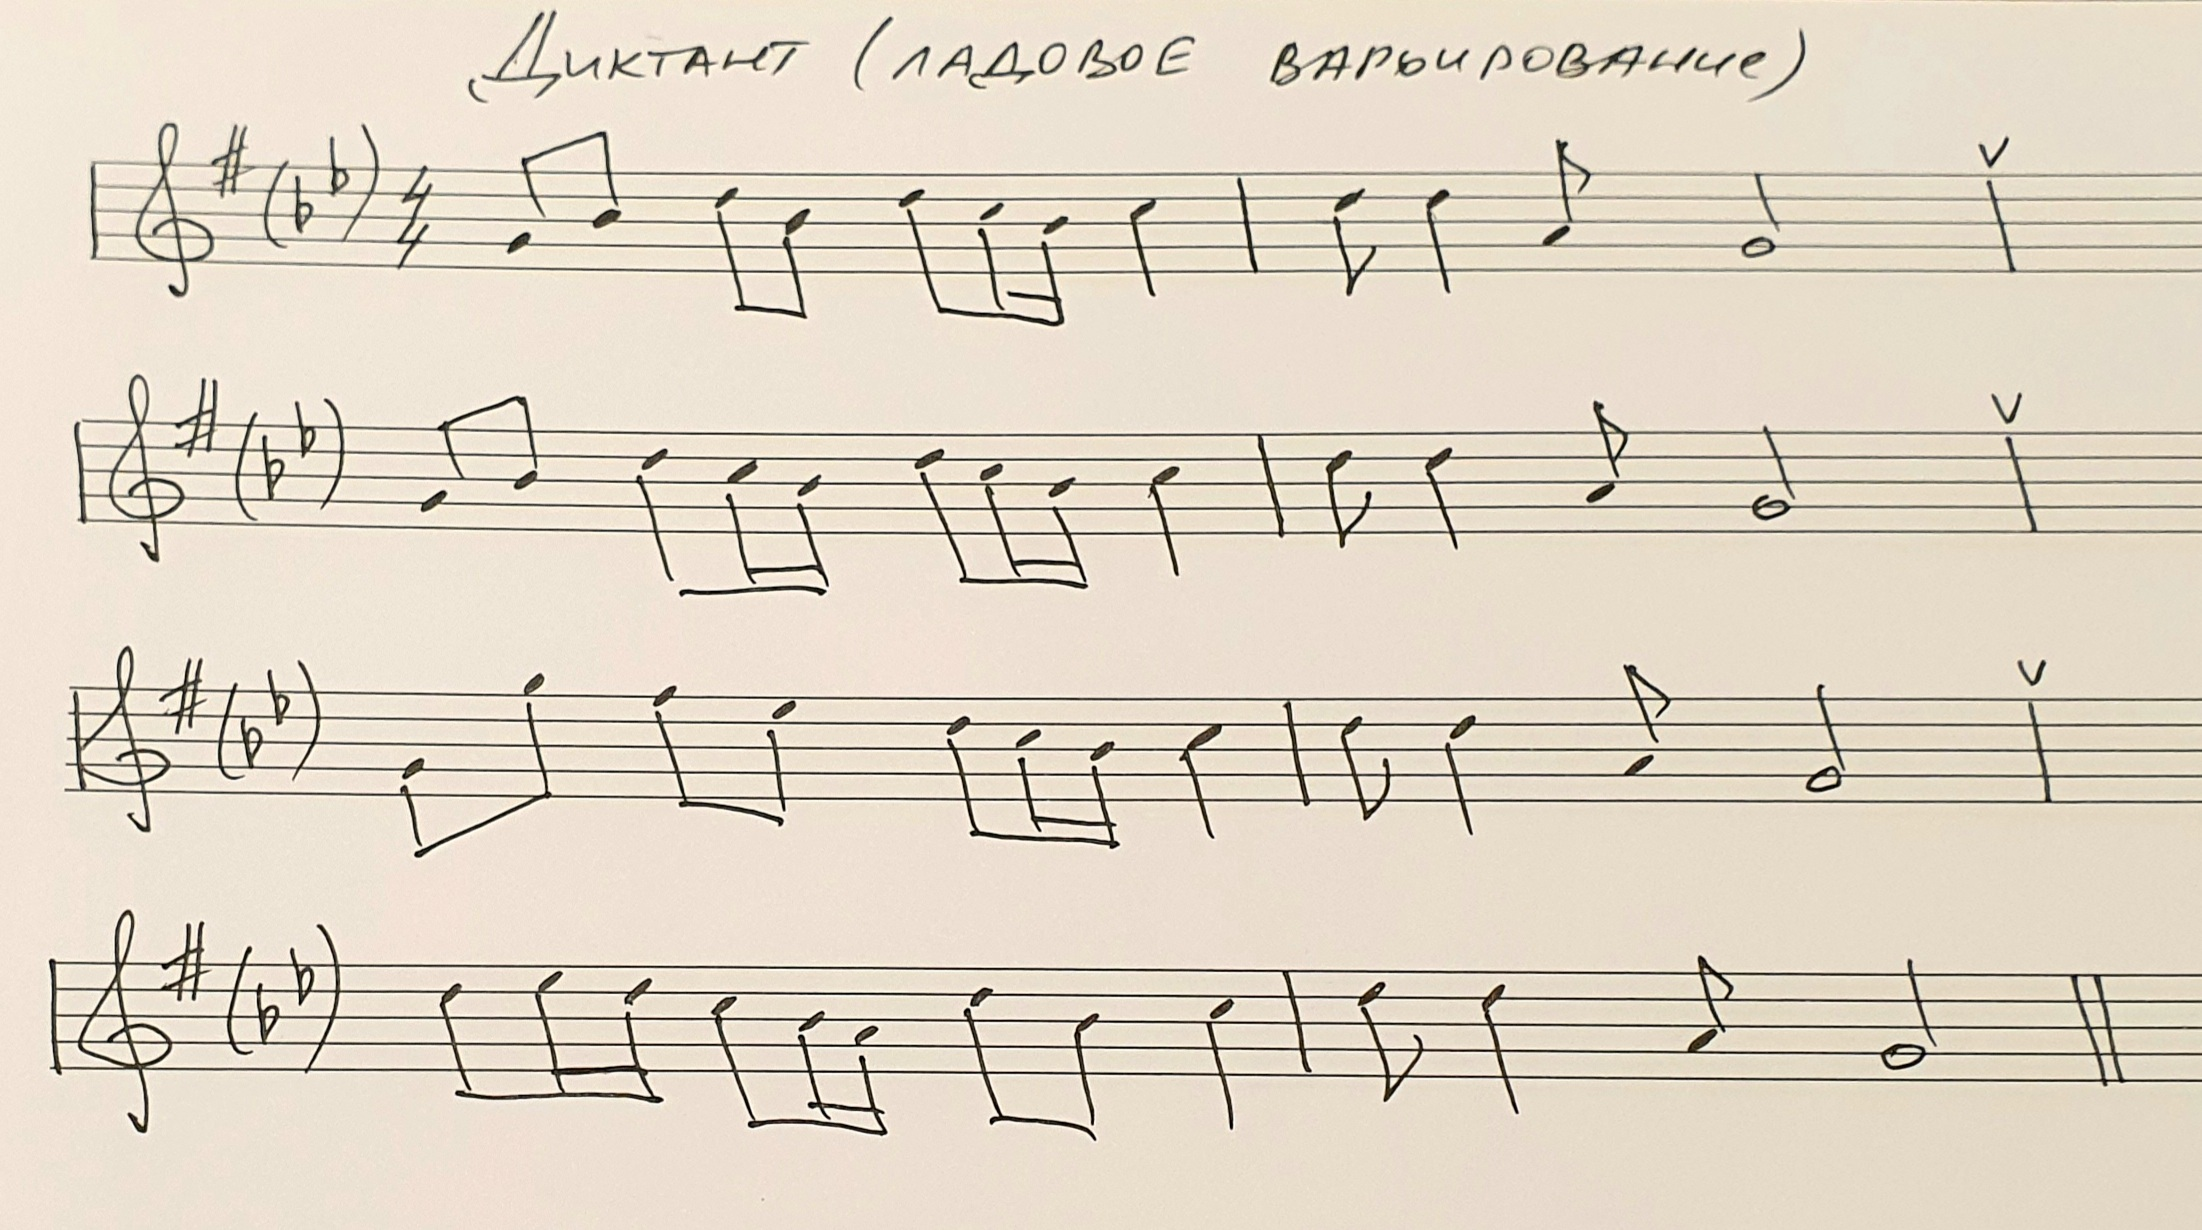 Диктант (ладовое варьирование)
4
4